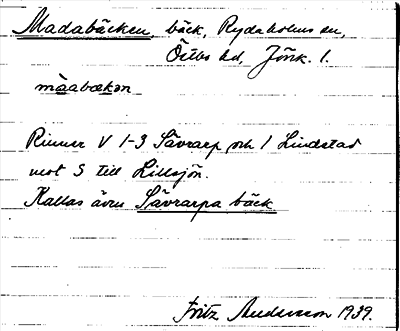 Madabäcken bäck, Rydaholms sn,
Östbo hd, Jönk. l.
màabækən
Rinner V 1-3 Sävrarp och 1 Lindstad
mot S till Lillsjön.
Kallas även Sävrarpa bäck
Fritz Andersson 1939.